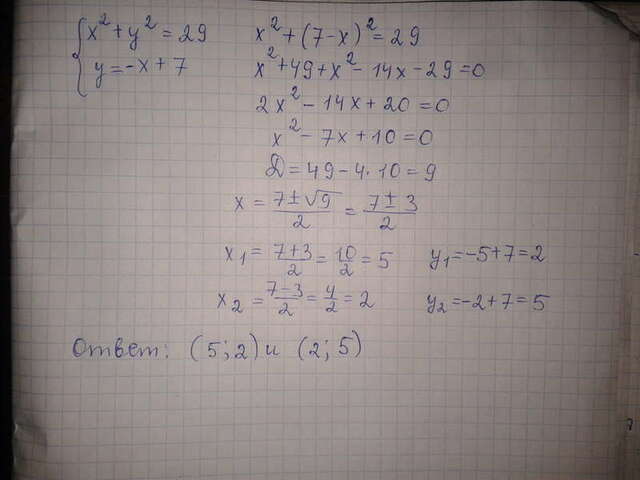 {x² + y² = 29
y = -x + 7
x² + (7-x)² = 29
x² + 49 + x² - 14x - 29 = 0
2x² - 14x + 20 = 0
x² - 7x + 10 = 0
D = 49 - 4 · 10 = 9
x = (7 ± √9)/2 = (7 ± 3)/2
x₁ = (7+3)/2 = 10/2 = 5 y₁ = -5+7 = 2
x₂ = (7-3)/2 = 4/2 = 2 y₂ = -2+7 = 5
Ответ: (5; 2) и (2; 5)